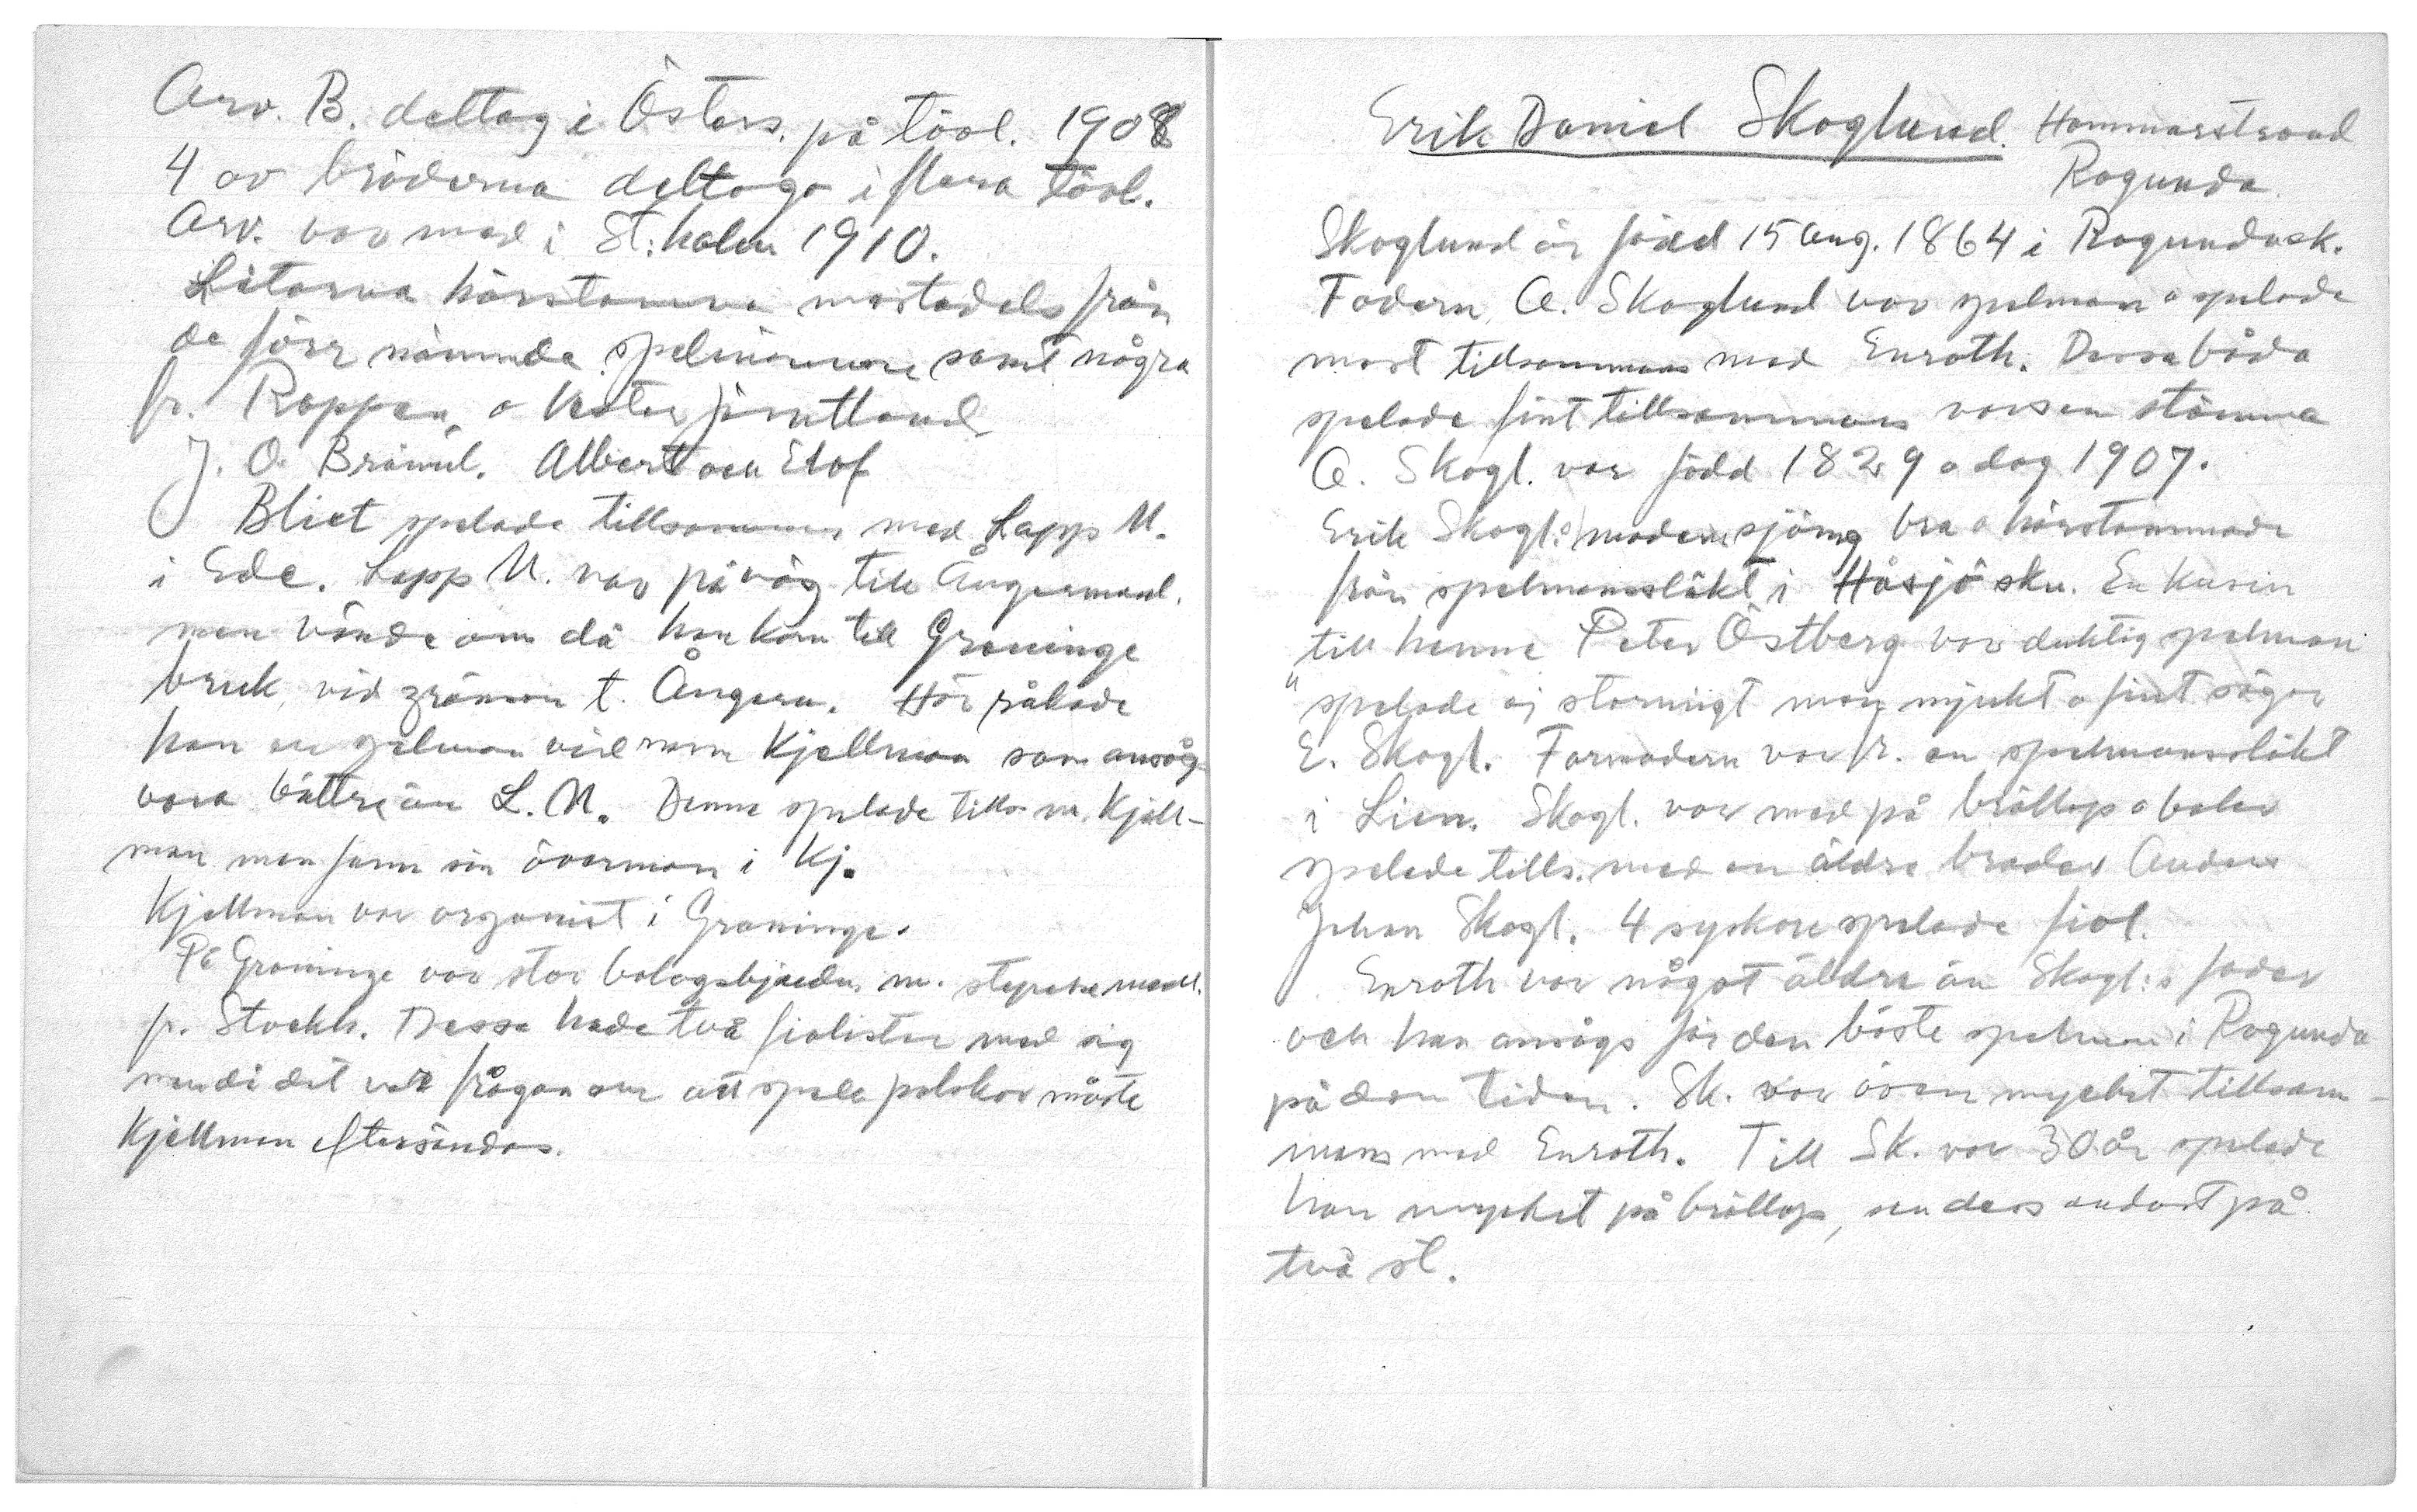 Arv. B. deltog i Östers. på tävl. 1908
4 av bröderna deltogo i flera tävl.
Arv. var med i St:holm 1910.
Låtarna härstamma mestadels från
de förr nämnda spelmänne samt några
fr. Roppen o Västerjämtland
J. O. Bräml. Albert och Elof
Bliet spelade tillsammans med Lapp N.
i Ede. Lapp N. var på väg till Ångermanl.
men vände om då han kom till Graninge
bruk, vid gränsen t. Ångerm. Här råkade
han en spelman vid namn Kjellman som ansågs
vara bättre än L. N. Denne spelade tills. m. Kjell-
man men fann sin överman i Kj.
Kjellman var organist i Graninge.
På Graninge var stor bolagsbjudn. m.
fr. Stockh. Dessa hade två fiolister med sig
men då det var frågan om att spela polskor måste
Kjellman eftersändas.
Erik Daniel Skoglund. Hammarstrand
Ragunda.
Skoglund är född 15 Aug. 1864 i Ragunda sk.
Fadern, O. Skoglund var spelman o spelade
mest tillsammans med Enroth. Dessa båda
spelade fint tillsammans varsen stämma
O. Skogl. var född 1829 o dog 1907.
Erik Skogl:s moder sjöng bra o härstammade
från spelmanssläkt i Håsjö skn. En kusin
till henne Peter Östberg var duktig spelman
"spelade ej stormigt men mjukt o fint säger
E. Skogl. Farmodern var fr. en spelmanssläkt
i Lien. Skogl. var med på bröllop o baler
spelade tills. med en äldre broder Anders
Johan Skogl. 4 syskon spelade fiol.
Enroth var något äldre än Skogl:s fader
och han ansågs för den bäste spelman i Ragunda
på den tiden. Sk. var även mycket tillsam-
mans med Enroth. Till Sk. var 30 år spelade
han mycket på bröllop, sen dess endast på
två st.